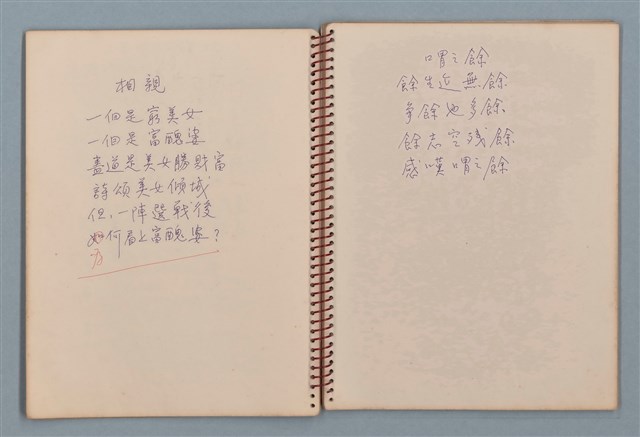 相親
一個是窮美女
一個是富醜婆
盡道是美女勝財富
詩頌美女傾城
但,一陣選戰後
如何看上富醜婆?
為
喟之餘
餘生近無餘
夸餘也多餘
餘志空殘餘
感嘆喟之餘